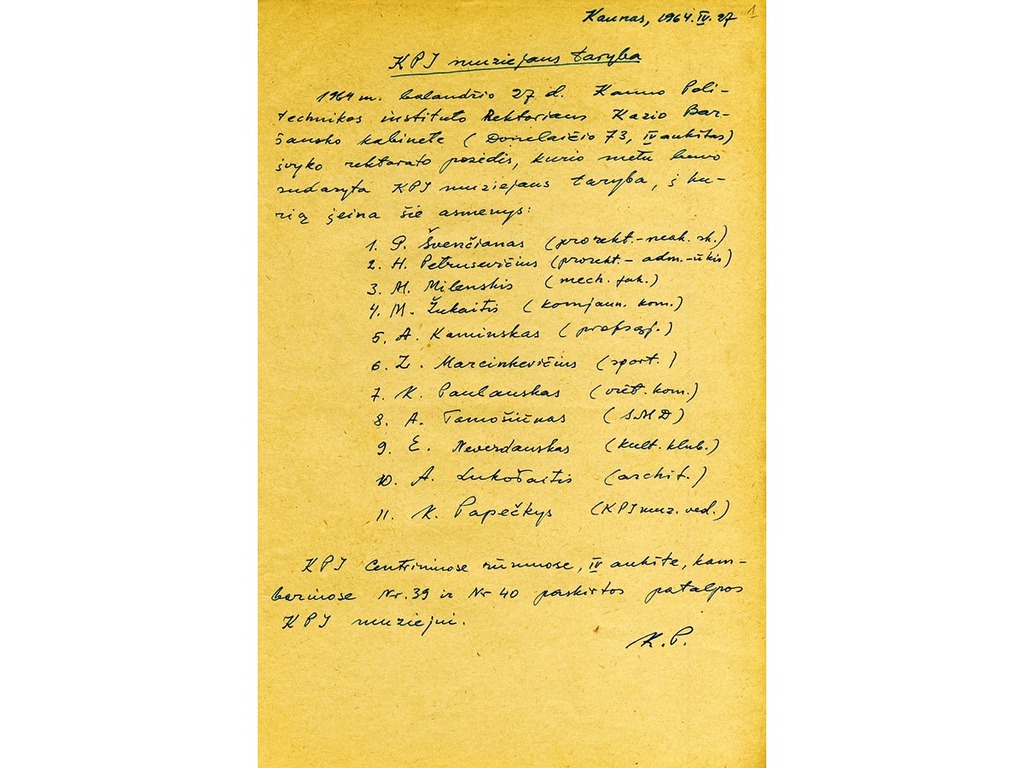 Kaunas, 1964.IV.27
1
KPI muziejaus taryba
1964 m. balandžio 27 d. Kauno Poli-
technikos instituto Rektoriaus Kazio Bar-
šausko kabinete (Donelaičio 73, IV aukštas)
įvyko rektorato posėdis, kurio metu buvo
sudaryta KPI muziejaus taryba, į ku-
rią įeina šie asmenys:
1. P. Švenčianas (prorekt.-neak. sk.)
2. H. Petrusevičius (prorekt.- adm.-ūkis)
3. M. Milenskis (mech. fak.)
4. M. Žukaitis (komjaun. kom.)
5. A. Kaminskas (profsąj.)
6. Z. Marcinkevičius (sport.)
7. K. Paulauskas (viet. kom.)
8. A. Tamošiūnas (SMD)
9. E. Neverdauskas (kult. klub.)
10. A. Lukošaitis (archit.)
11. K. Papečkys (KPI muz. ved.)
KPI Centriniuose rūmuose, IV aukšte, kam-
bariuose Nr. 39 ir Nr 40 paskirtos patalpos
KPI muziejui.
K.P.